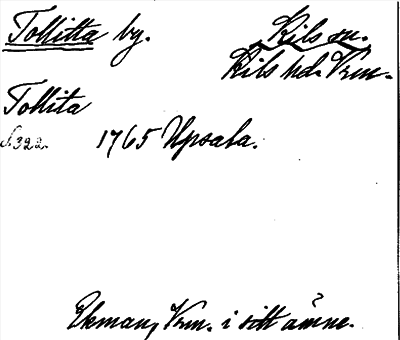 Tollitta by. Kils sn.
Kils hd. Vrm.
Tollita
s. 322. 1765 Upsala.
Ekman, Vrm. i sitt ämne.